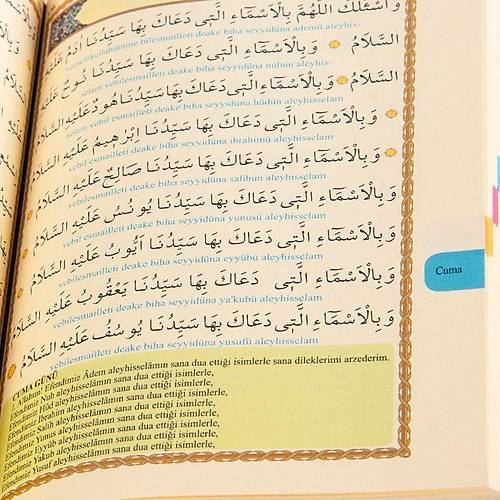 وَ اَسْئَلُكَ اللّٰهُمَّ بِالْاَسْمَٓاءِ الَّتٖى دَعَاكَ بِهَا سَيِّدُنَا اٰدَمُ عَلَيْهِ
veeselükellahümme bilesmailleti deake biha seyyidüna ademü aleyhis-
السَّلَامُ وَ بِالْاَسْمَٓاءِ الَّتٖى دَعَاكَ بِهَا سَيِّدُنَا نُوحٌ عَلَيْهِ
selam vebilesmailleti deake biha seyyidüna nuhun aleyhis-
السَّلَامُ وَ بِالْاَسْمَٓاءِ الَّتٖى دَعَاكَ بِهَا سَيِّدُنَا هُودٌ عَلَيْهِ السَّلَامُ
selam vebil esmailleti deake biha seyyidüna hûdün aleyhisselam
وَ بِالْاَسْمَٓاءِ الَّتٖى دَعَاكَ بِهَا سَيِّدُنَا اِبْرٰهٖيمُ عَلَيْهِ السَّلَامُ
vebil esmailleti deake biha seyyidüna ibrahimü aleyhisselam
وَ بِالْاَسْمَٓاءِ الَّتٖى دَعَاكَ بِهَا سَيِّدُنَا صَالِحٌ عَلَيْهِ السَّلَامُ
vebilesmailleti deake biha seyyidüna salihun aleyhisselam
وَ بِالْاَسْمَٓاءِ الَّتٖى دَعَاكَ بِهَا سَيِّدُنَا يُونُسُ عَلَيْهِ السَّلَامُ
vebil esmailleti deake biha seyyidüna yunusü aleyhisselam
وَ بِالْاَسْمَٓاءِ الَّتٖى دَعَاكَ بِهَا سَيِّدُنَا اَيُّوبُ عَلَيْهِ السَّلَامُ
vebilesmailleti deake biha seyyidüna eyyübü aleyhisselam
وَ بِالْاَسْمَٓاءِ الَّتٖى دَعَاكَ بِهَا سَيِّدُنَا يَعْقُوبُ عَلَيْهِ السَّلَامُ
vebilesmailleti deake biha seyyidüna ya'kubü aleyhisselam
وَ بِالْاَسْمَٓاءِ الَّتٖى دَعَاكَ بِهَا سَيِّدُنَا يُوسُفُ عَلَيْهِ السَّلَامُ
vebilesmailleti deake biha seyyidüna yusufü aleyhisselam
Cuma
CUMA GÜNÜ
Allahım! Efendimiz Âdem aleyhisselâmın sana dua ettiği isimlerle sana dileklerimi arzederim.
Efendimiz Nuh aleyhisselâmın sana dua ettiği isimlerle,
Efendimiz Hûd aleyhisselâmın sana dua ettiği isimlerle,
Efendimiz İbrahim aleyhisselâmın sana dua ettiği isimlerle,
Efendimiz Salih aleyhisselâmın sana dua ettiği isimlerle,
Efendimiz Yunus aleyhisselâmın sana dua ettiği isimlerle,
Efendimiz Eyyûb aleyhisselâmın sana dua ettiği isimlerle,
Efendimiz Yakub aleyhisselâmın sana dua ettiği isimlerle,
Efendimiz Yusuf aleyhisselâmın sana dua ettiği isimlerle,